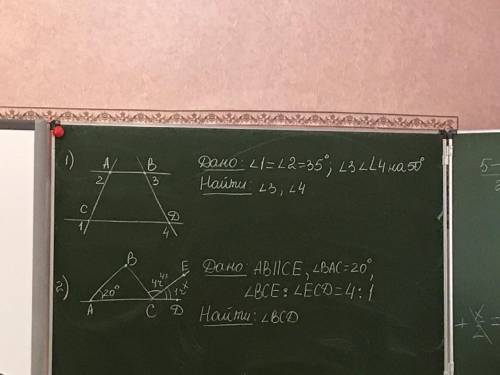 1)
A B
2 3
C D
1 4
Дано: ∠1=∠2=35°; ∠3∠∠4 на 50°
Найти ∠3, ∠4
2)
B
E
20°
A C D
Дано: AB||CE, ∠BAC=20°,
∠BCE:∠ECD=4:1
Найти: ∠BCD
5-
+ x
2 =